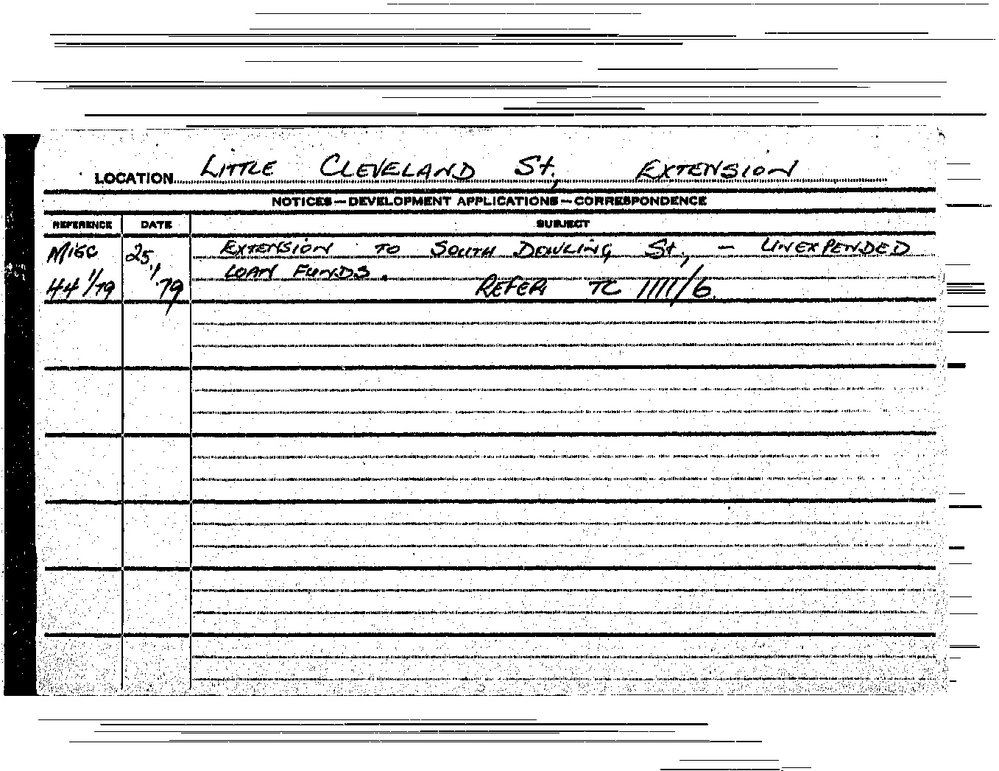 LOCATION LITTLE CLEVELAND St, EXTENSION
NOTICES — DEVELOPMENT APPLICATIONS — CORRESPONDENCE
REFERENCE DATE SUBJECT
MISC 25 EXTENSION TO SOUTH DOWLING St, — UNEXPENDED
LOAN FUNDS.
44 1/79 1/79 REFER TO 1111/6.